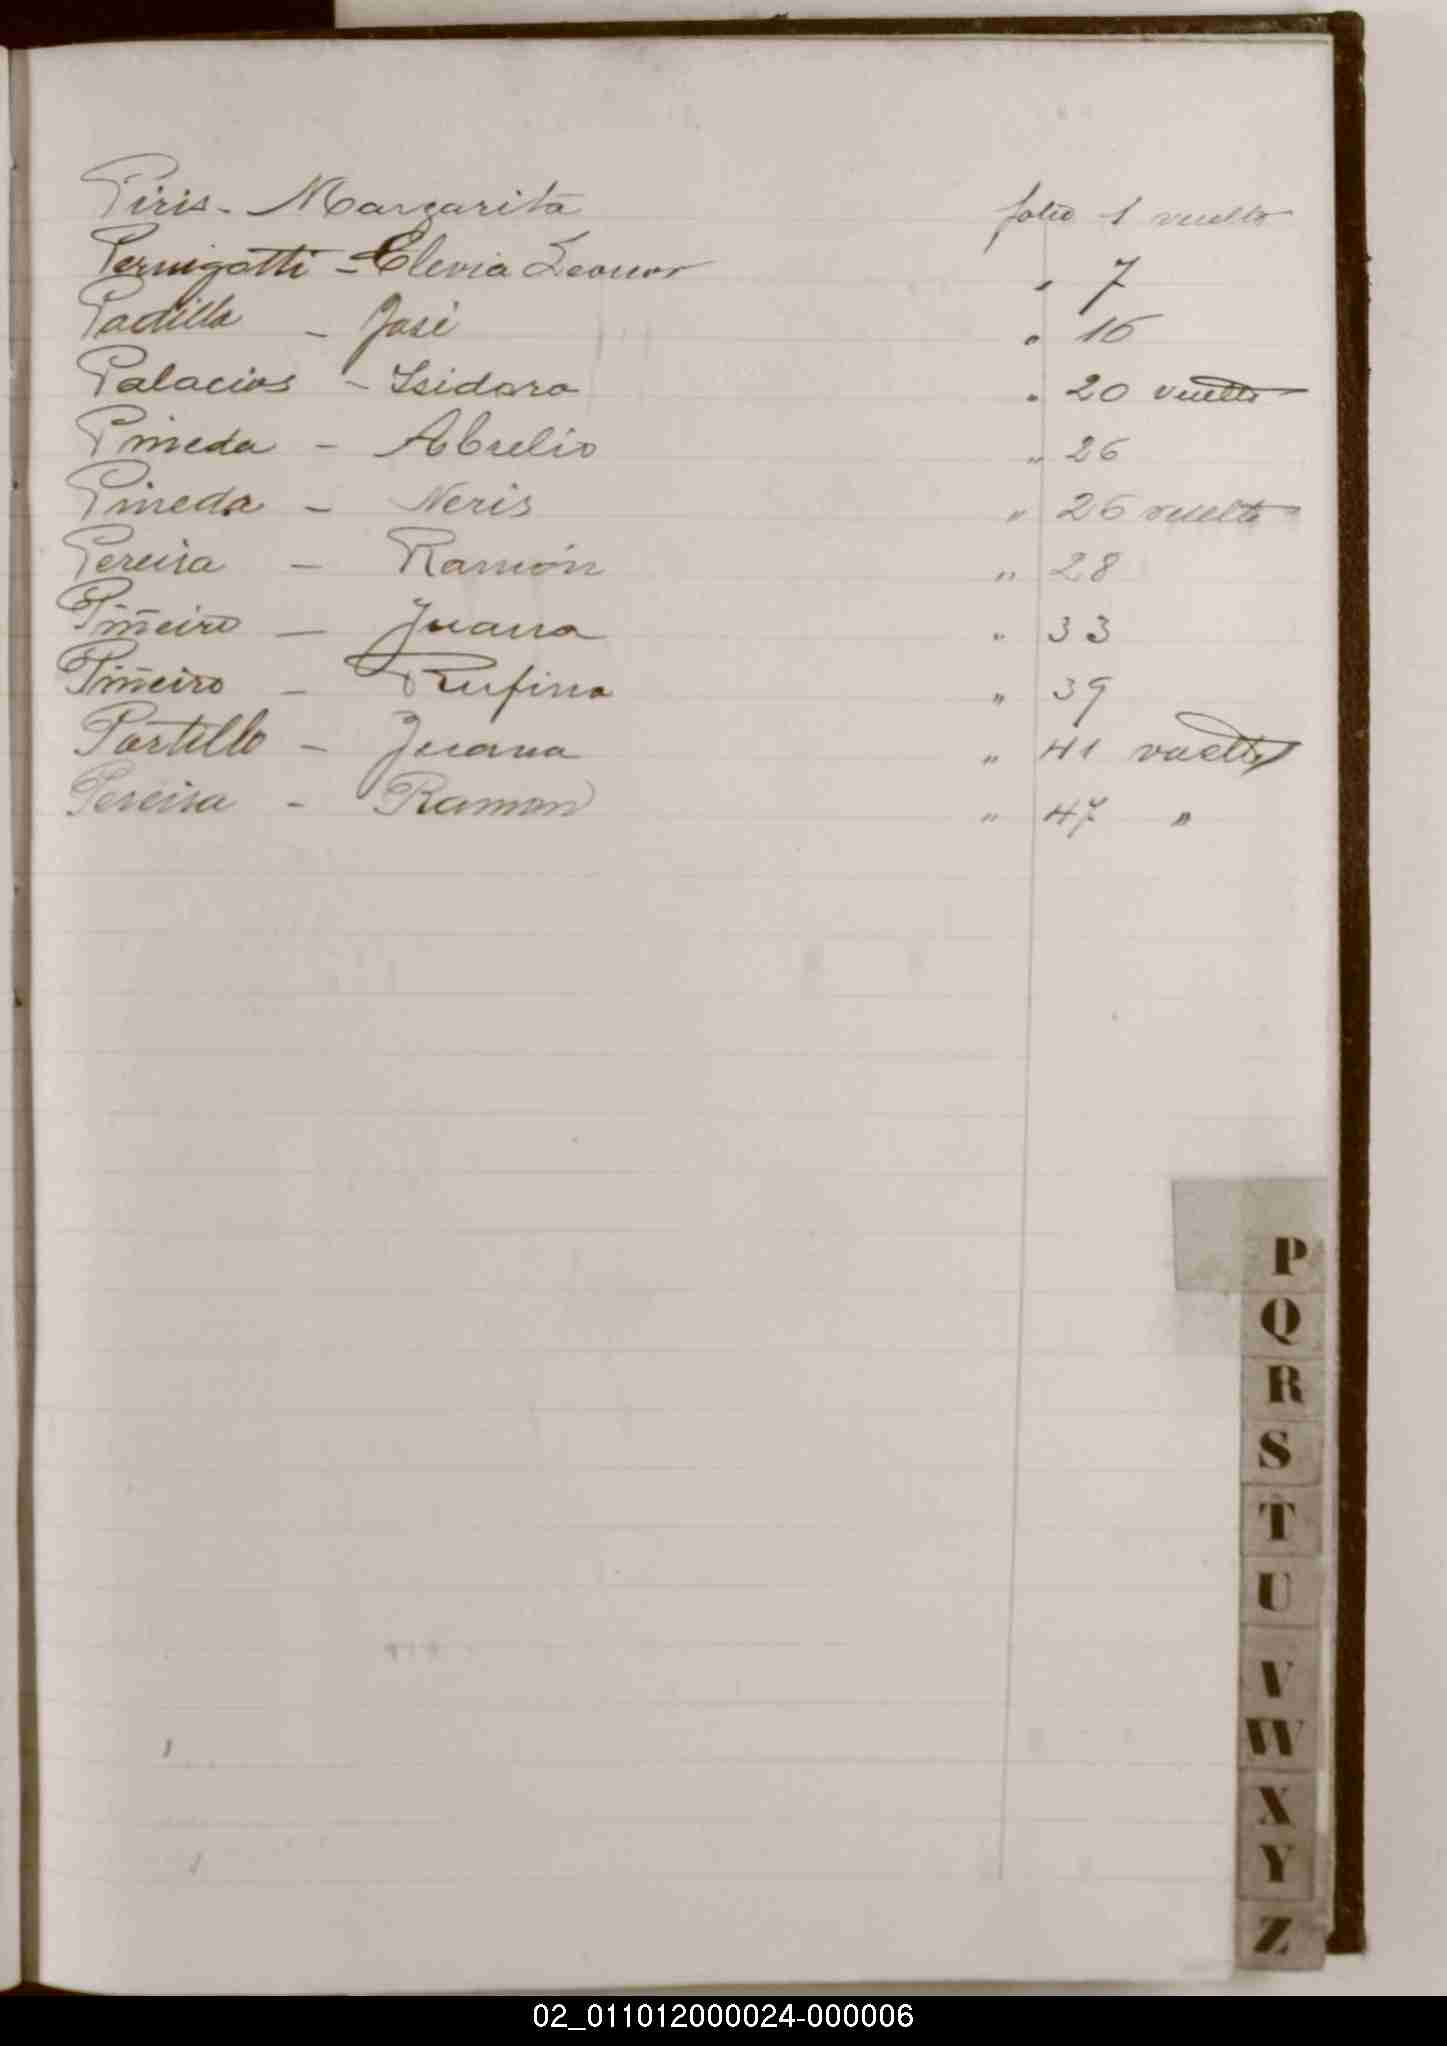 Piris - Margarita folio 1 vuelto
Pernigotti - Elevia Leonor " 7
Padilla - José " 16
Palacios - Isidoro " 20 vuelto
Pineda - Abrelio " 26
Pineda - Neris " 26 vuelto
Pereira - Ramón " 28
Piñeiro - Juana " 33
Piñeiro - Rufina " 39
Portillo - Juana " 41 vuelto
Pereira - Ramon " 47 "
P
Q
R
S
T
U
V
W
X
Y
Z
02_011012000024-000006